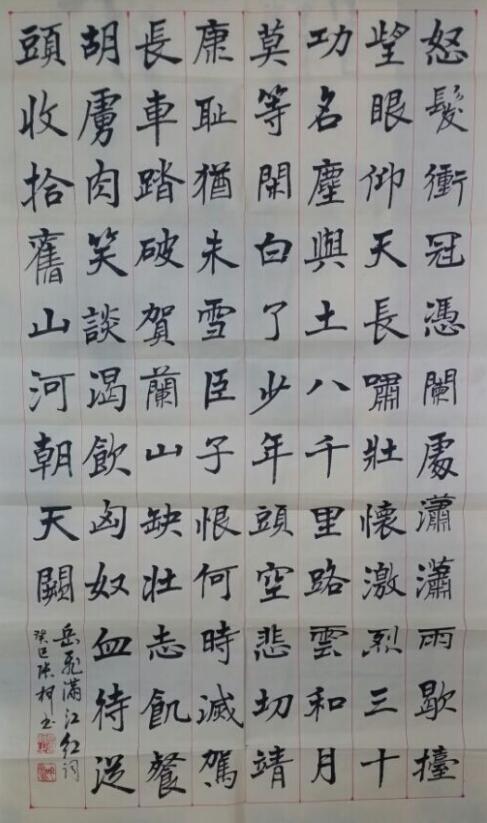 怒髮衝冠憑闌處瀟瀟雨歇擡
望眼仰天長嘯壯懷激烈三十
功名塵與土八千里路雲和月
莫等閑白了少年頭空悲切靖
康恥猶未雪臣子恨何時滅駕
長車踏破賀蘭山缺壯志飢餐
胡虜肉笑談渴飲匈奴血待從
頭收拾舊山河朝天闕
岳飛滿江紅詞
癸巳張柯書